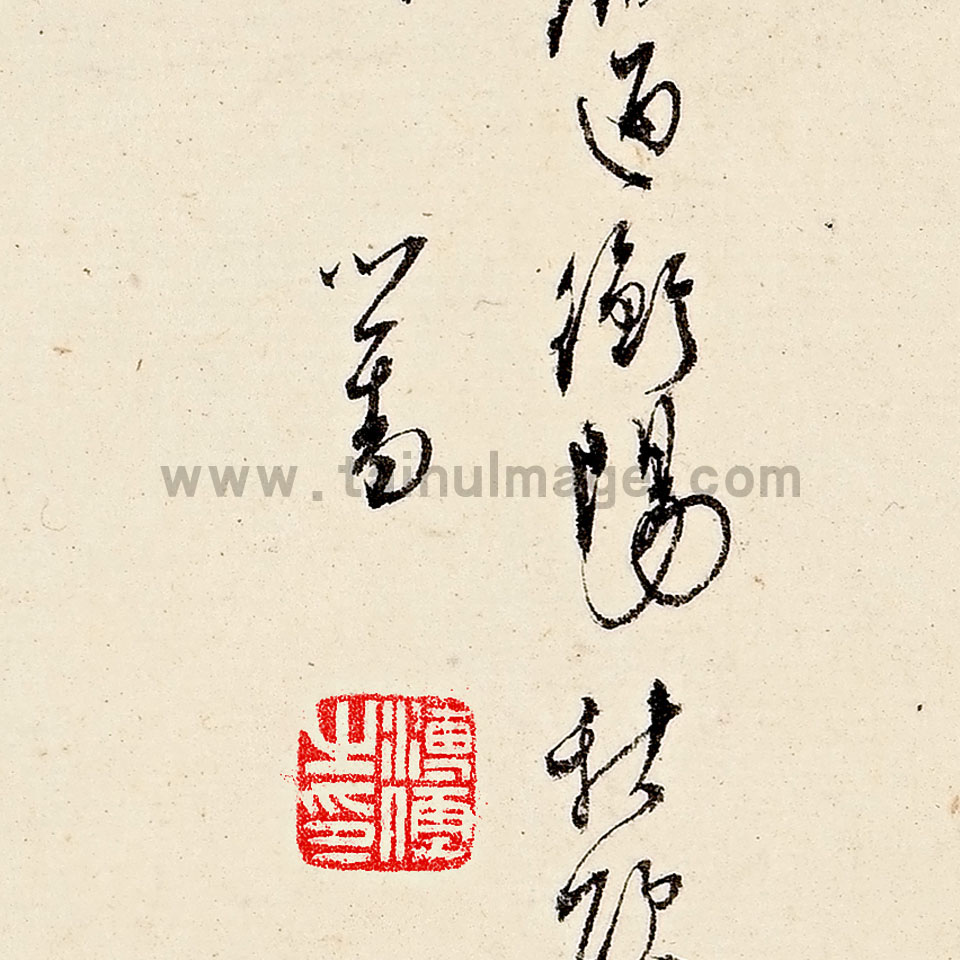 過衡陽秋
心畬
溥儒之印
www.taihuImage.com